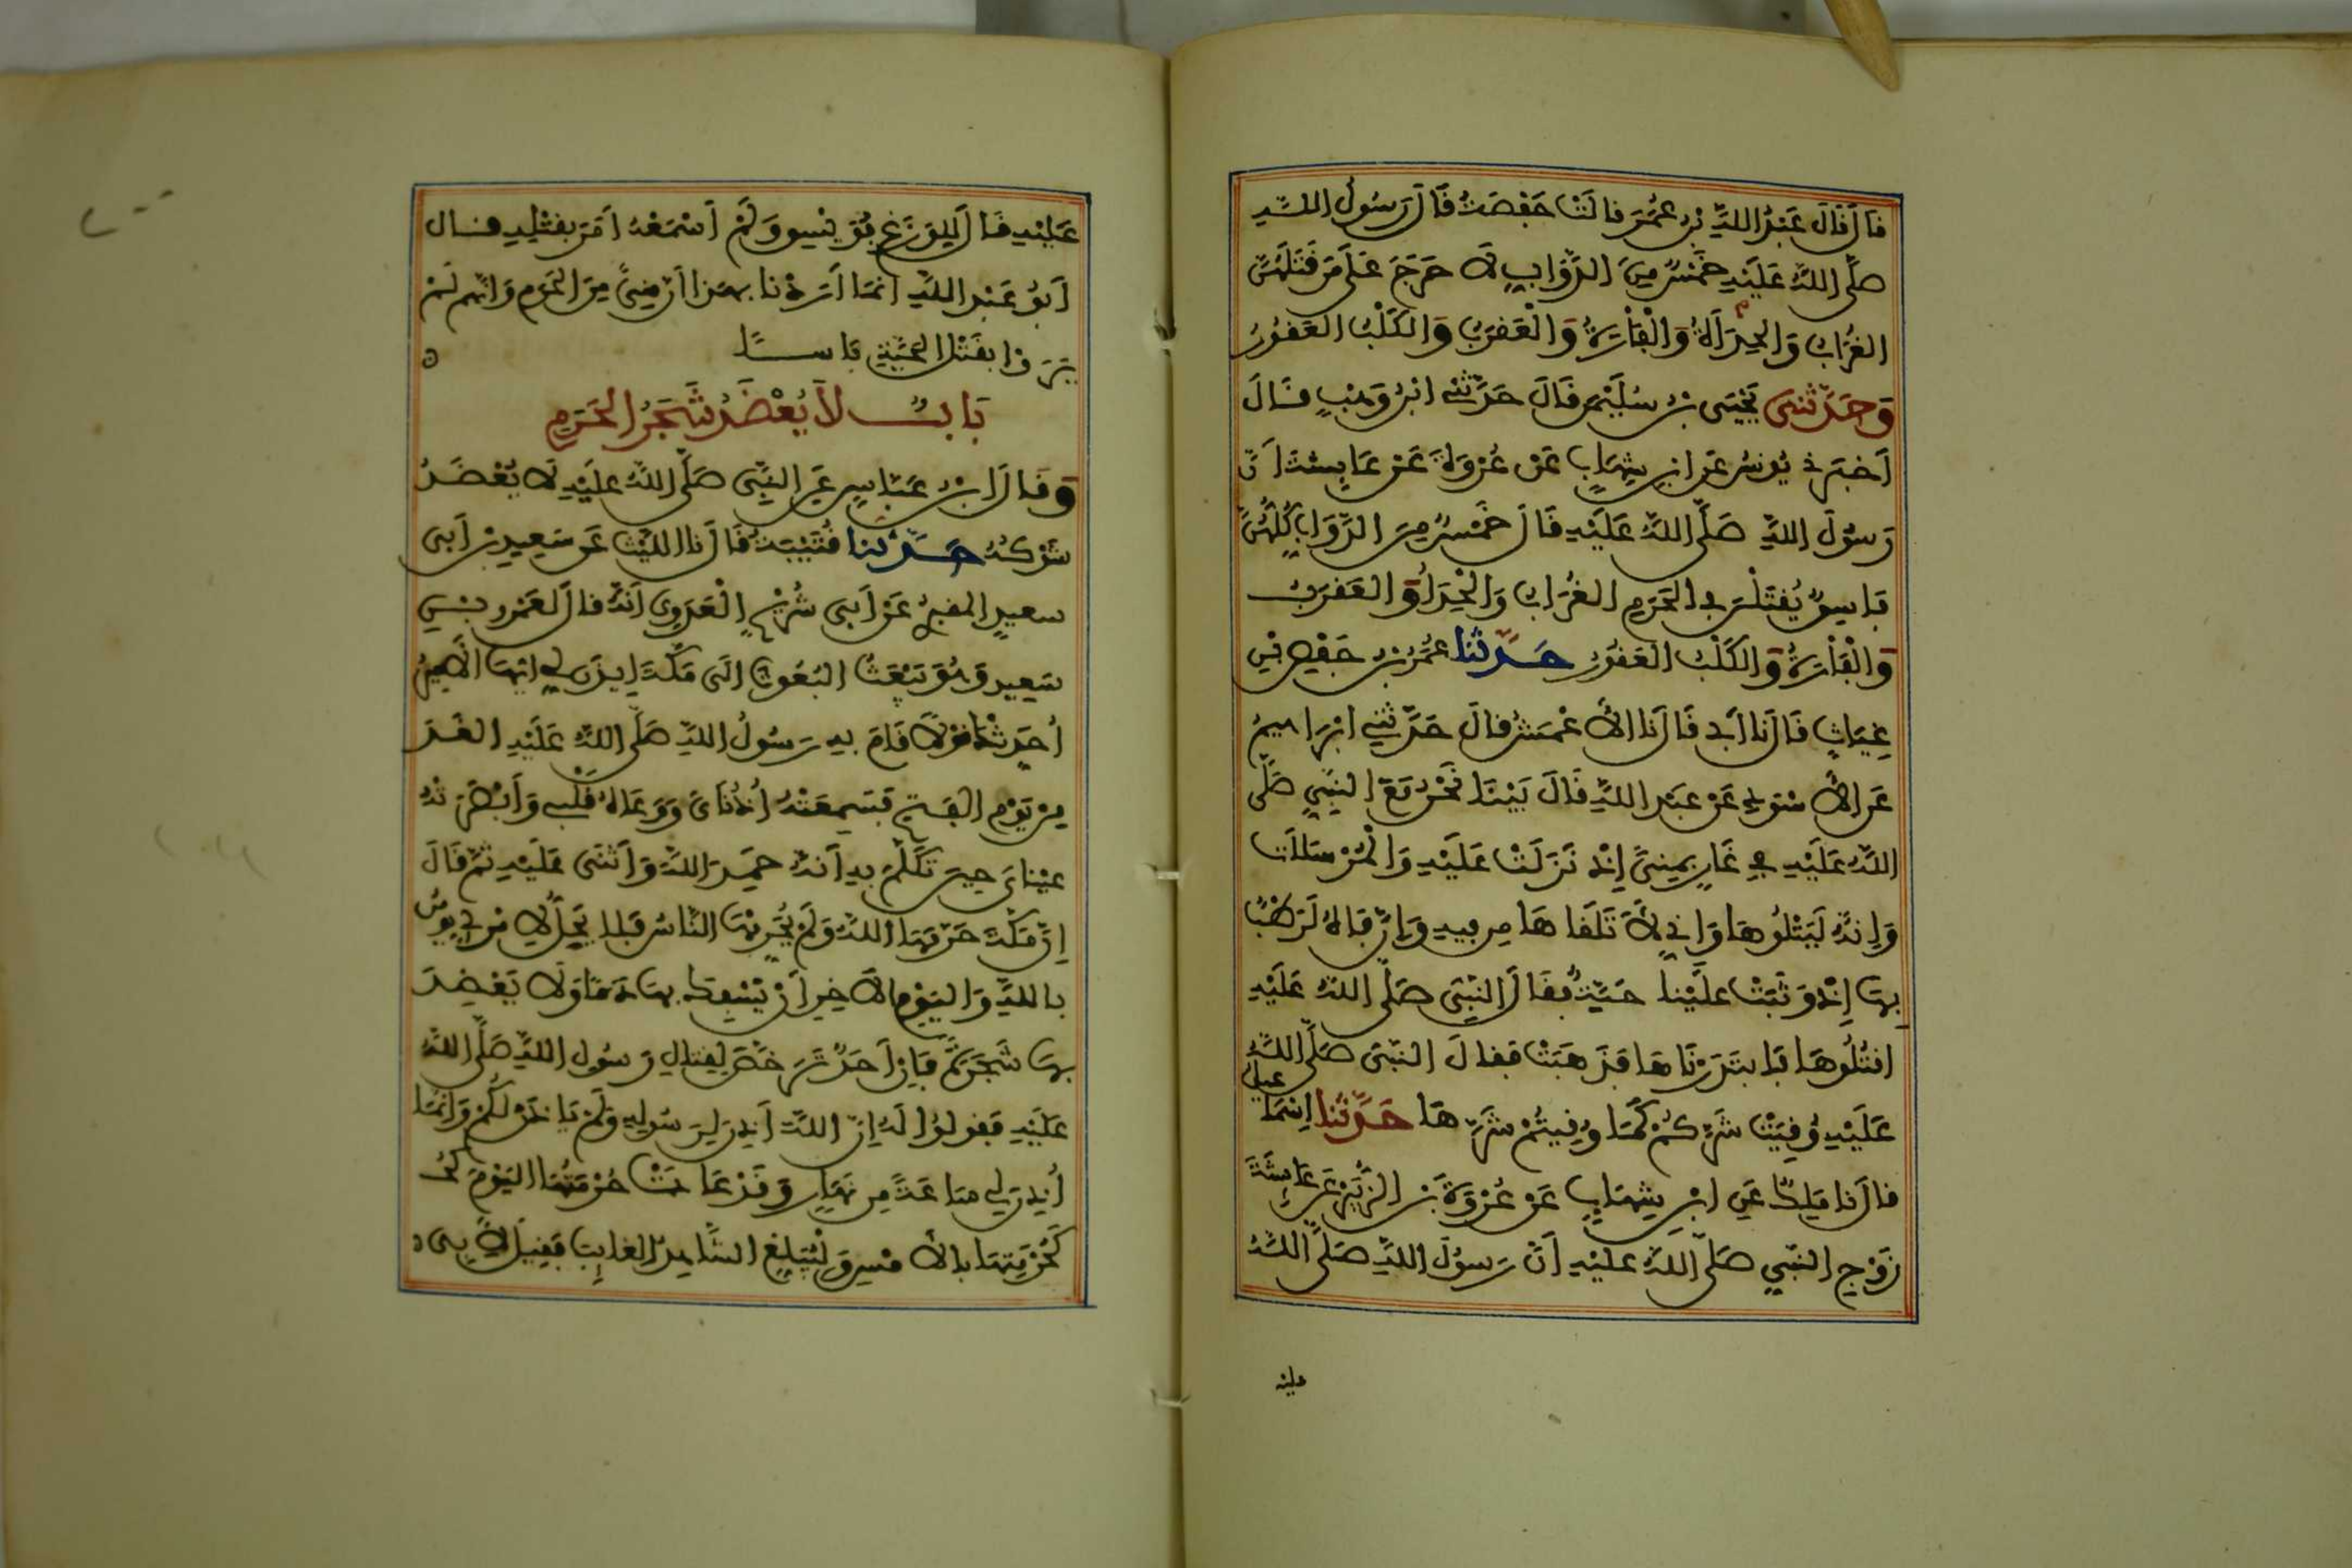 قَالَ قَالَ عَبْدُ اللَّهِ بْنُ عُمَرَ قَالَتْ حَفْصَةُ قَالَ رَسُولُ اللَّهِ
صَلَّى اللَّهُ عَلَيْهِ خَمْسٌ مِنَ الدَّوَابِ لَا حَرَجَ عَلَى مَن قَتَلَهُنَّ
الغُرَابُ وَالحِدَأَةُ وَالْفَأْرَةُ وَالْعَقْرَبُ وَالكَلْبُ العَقُورُ
وَحَدَّثَنِي يَحْيَى بْنُ سُلَيْمَنَ قَالَ حَدَّثَنِي ابْنُ وَهْبٍ قَالَ
أَخْبَرَنِي يُونُسُ عَنِ ابْنِ شِهَابٍ عَنْ عُرْوَةَ عَنْ عَايِشَةَ أَنَّ
رَسُولَ اللَّهِ صَلَّى اللَّهُ عَلَيْهِ قَالَ خَمْسٌ مِنَ الدَّوَابِ كُلُّهُنَّ
فَاسِقٌ يُقْتَلْنَ فِي الحَرَمِ الغُرَابُ وَالْحِدَأَةُ وَالعَقْرَبُ
وَالْفَأْرَةُ وَالكَلْبُ العَقُورُ حَدَّثَنَا عُمَرُ بْنُ حَفْصِ بْنِ
غِيَاثٍ قَالَ نَا أَبِي قَالَ نَا الأَعْمَشُ قَالَ حَدَّثَنِي ابْرَاهِيمُ
عَنِ الأَسْوَدِ عَنْ عَبْدِ اللَّهِ قَالَ بَيْنَا نَحْنُ مَعَ النَّبِيِّ صَلَّى
اللَّهُ عَلَيْهِ فِي غَارٍ بِمِنىً إِذْ نَزَلَتْ عَلَيْهِ وَالْمُرْسَلَاتِ
وَإِنَّهُ لَيَتْلُوهَا وَإِنِّي لَأَتَلَقَّاهَا مِن فِيهِ وَإِنَّ فَاهُ لَرَطْبٌ
بِهَا إِذْ وَثَبَتْ عَلَيْنَا حَيَّةٌ فَقَالَ النَّبِيُّ صَلَّى اللَّهُ عَلَيْهِ
اقْتُلُوهَا فَابْتَدَرْنَاهَا فَذَهَبَتْ فَقَالَ النَّبِيُّ صَلَّى اللَّهُ
عَلَيْهِ وُقِيَتْ شَرَّكُمْ كَمَا وُقِيتُمْ شَرَّهَا حَدَّثَنَا اسْمَاعيل
قَالَ نَا مَلِكٌ عَنِ ابْنِ شِهَابٍ عَنْ عُرْوَةَ بْنِ الزُّبَيْرِ عَن عَايِشَةَ
زَوْجِ النَّبِيِّ صَلَّى اللَّهُ عَلَيْهِ أَنَّ رَسُولَ اللَّهِ صَلَّى اللَّهُ
عليه
عَلَيْهِ قَالَ لِلْوَزَغِ فُوَيْسِقٌ وَلَمْ أَسْمَعْهُ أَمَرَ بِقَتْلِهِ قَالَ
أَبُو عَبْدِ اللَّهِ انَّمَا أَرَدْنَا بِهَذَا أَنَّ مِنىً مِنَ الحَرَمِ وَانَّهُم لَمْ
يَرَوْا بِقَتْلِ الحَيَّةِ بَاسًا
بَابٌ لَا يُعْضَدُ شَجَرُ الحَرَمِ
وَقَالَ ابْنُ عَبَّاسٍ عَنِ النَّبِيِّ صَلَّى اللَّهُ عَلَيْهِ لَا يُعْضَدُ
شَوْكُهُ حَدَّثَنَا قُتَيْبَةُ قَالَ نَا اللَّيْثُ عَن سَعِيدِ بْنِ أَبِي
سعيدٍ المقبري عَنْ أَبِي شُرَيْحٍ الْعَدَوِيِّ أَنَّهُ قَالَ لعَمْرِو بْنِ
سَعِيدٍ وَهُوَ يَبْعَثُ البُعُوثَ الَى مَكَّةَ إِيذَن لِي أيُّهَا الأَمِيرُ
أُحَدِّثْكَ قَوْلاً قَامَ بِهِ رَسُولُ اللَّهِ صَلَّى اللَّهُ عَلَيْهِ الغَدَ
مِنْ يَوْمِ الفَتْحِ فَسَمِعَتْهُ أُذُنَايَ وَوَعَاهُ قَلْبِي وَأَبْصَرَتْهُ
عَيْنَايَ حِينَ تَكَلَّمَ بِهِ أَنَّهُ حَمِدَ اللَّهَ وَأَثْنَى عَلَيْهِ ثُمَّ قَالَ
إِنَّ مَكَّةَ حَرَّمَهَا اللَّهُ وَلَمْ يُحَرِّمْهَا النَّاسُ فَلَا يَحِلُّ لِامْرِئٍ يومن
بِاللَّهِ وَالْيَوْمِ الاَخِرِ أَنْ يَسْفِكَ بِهَا دَمًا وَلَا يَعْضِدَ
بِهَا شَجَرَةً فَإِنْ أَحَدٌ تَرَخَّصَ لِقِتَالِ رَسُولِ اللَّهِ صَلَّى اللَّهُ
عَلَيْهِ فَقُولُوا لَهُ إِنَّ اللَّهَ أَذِنَ لِرَسُولِهِ وَلَمْ يَاذَنْ لَكُمْ وَإِنَّمَا
أُذِنَ لِي سَاعَةً مِن نَهَارٍ وَقَدْ عَادَتْ حُرْمَتُهَا اليَوْمَ
كَحُرْمَتِهَا بِالأَمْسِ وَلْيُبَلِّغِ الشَّاهِدُ الغَايِبَ فَقِيلَ لِأَبِي